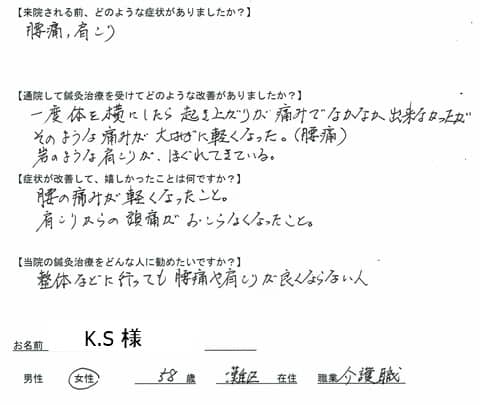 【来院される前、どのような症状がありましたか？】
腰痛，肩こり
【通院して鍼灸治療を受けてどのような改善がありましたか？】
一度体を横にしたら起き上がりが痛みでなかなか出来なかったが
そのような痛みが大はばに軽くなった。（腰痛）
岩のような肩こりが、ほぐれてきている。
【症状が改善して、嬉しかったことは何ですか？】
腰の痛みが軽くなったこと。
肩こりからの頭痛がおこらなくなったこと。
【当院の鍼灸治療をどんな人に勧めたいですか？】
整体などに行っても腰痛や肩こりが良くならない人
お名前 K.S 様
男性 女性 58 歳 灘区 在住 職業 介護職